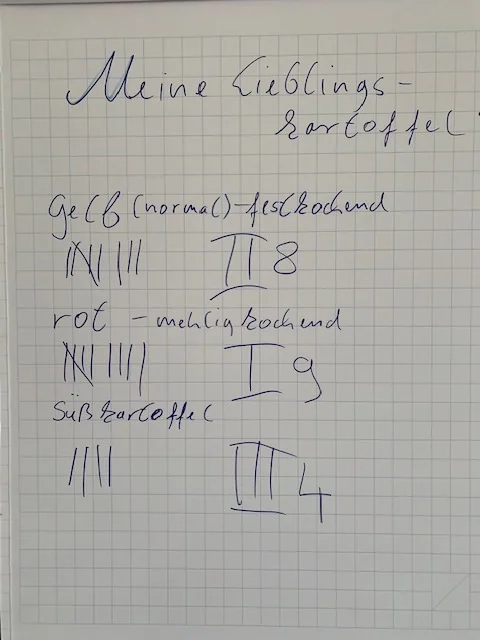 Meine Lieblings-
kartoffel
gelb (normal)-festkochend
|||| ||| II 8
rot - mehligkochend
|||| |||| I 9
Süßkartoffel
|||| III 4